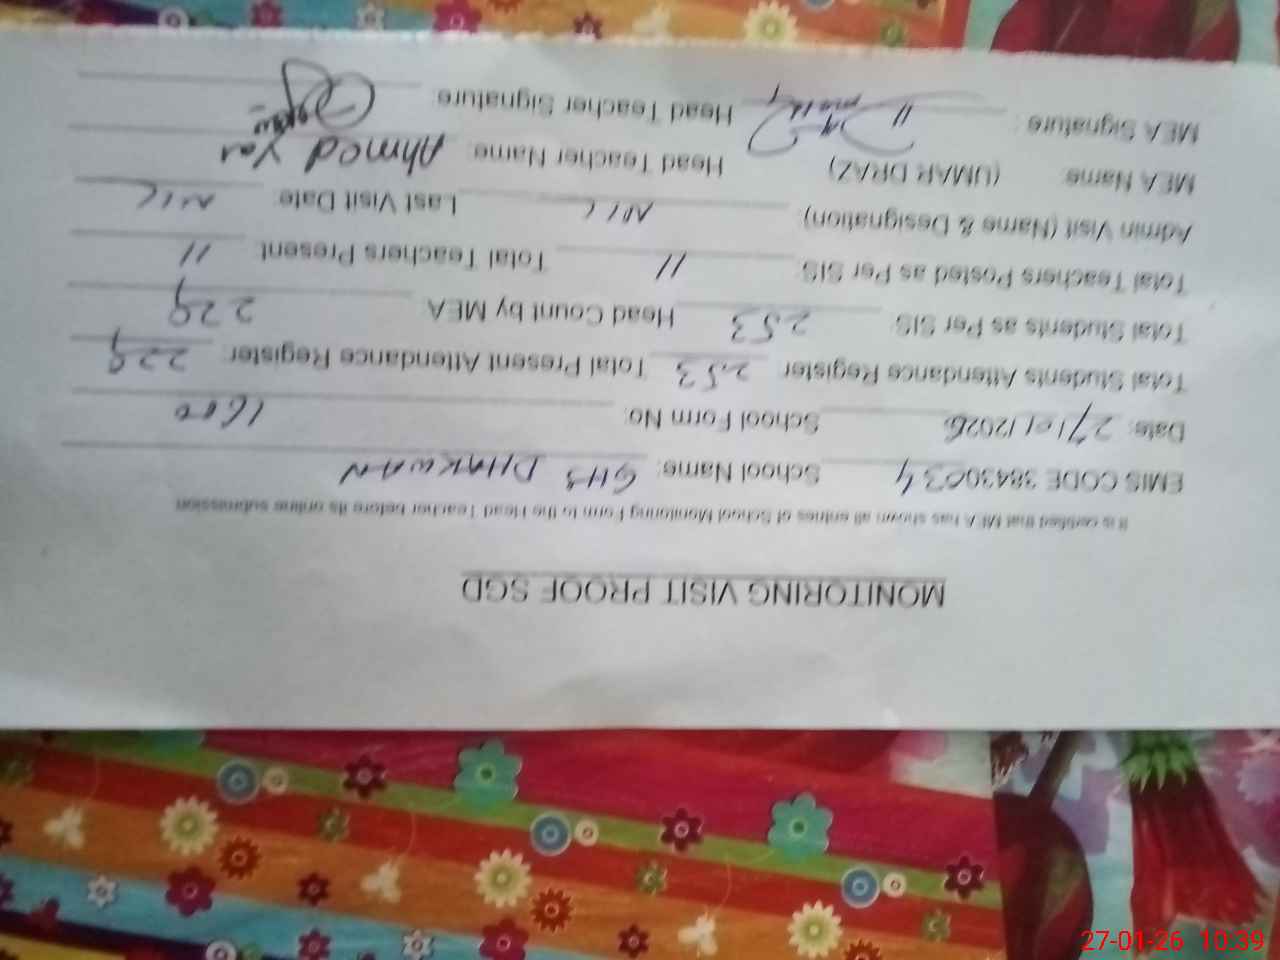 MONITORING VISIT PROOF SGD
It is certified that MEA has shown all entries of School Monitoring Form to the Head Teacher before its online submission
EMIS CODE 38430034 School Name: GHS DHAKWAN
Date: 27/01/2026 School Form No: 1600
Total Students Attendance Register 253 Total Present Attendance Register: 229
Total Students as Per SIS: 253 Head Count by MEA 229
Total Teachers Posted as Per SIS: 11 Total Teachers Present 11
Admin Visit (Name & Designation) NIL Last Visit Date: NIL
MEA Name: (UMAR DRAZ) Head Teacher Name: Ahmed Yar
MEA Signature : Head Teacher Signature:
27-01-26 10:39